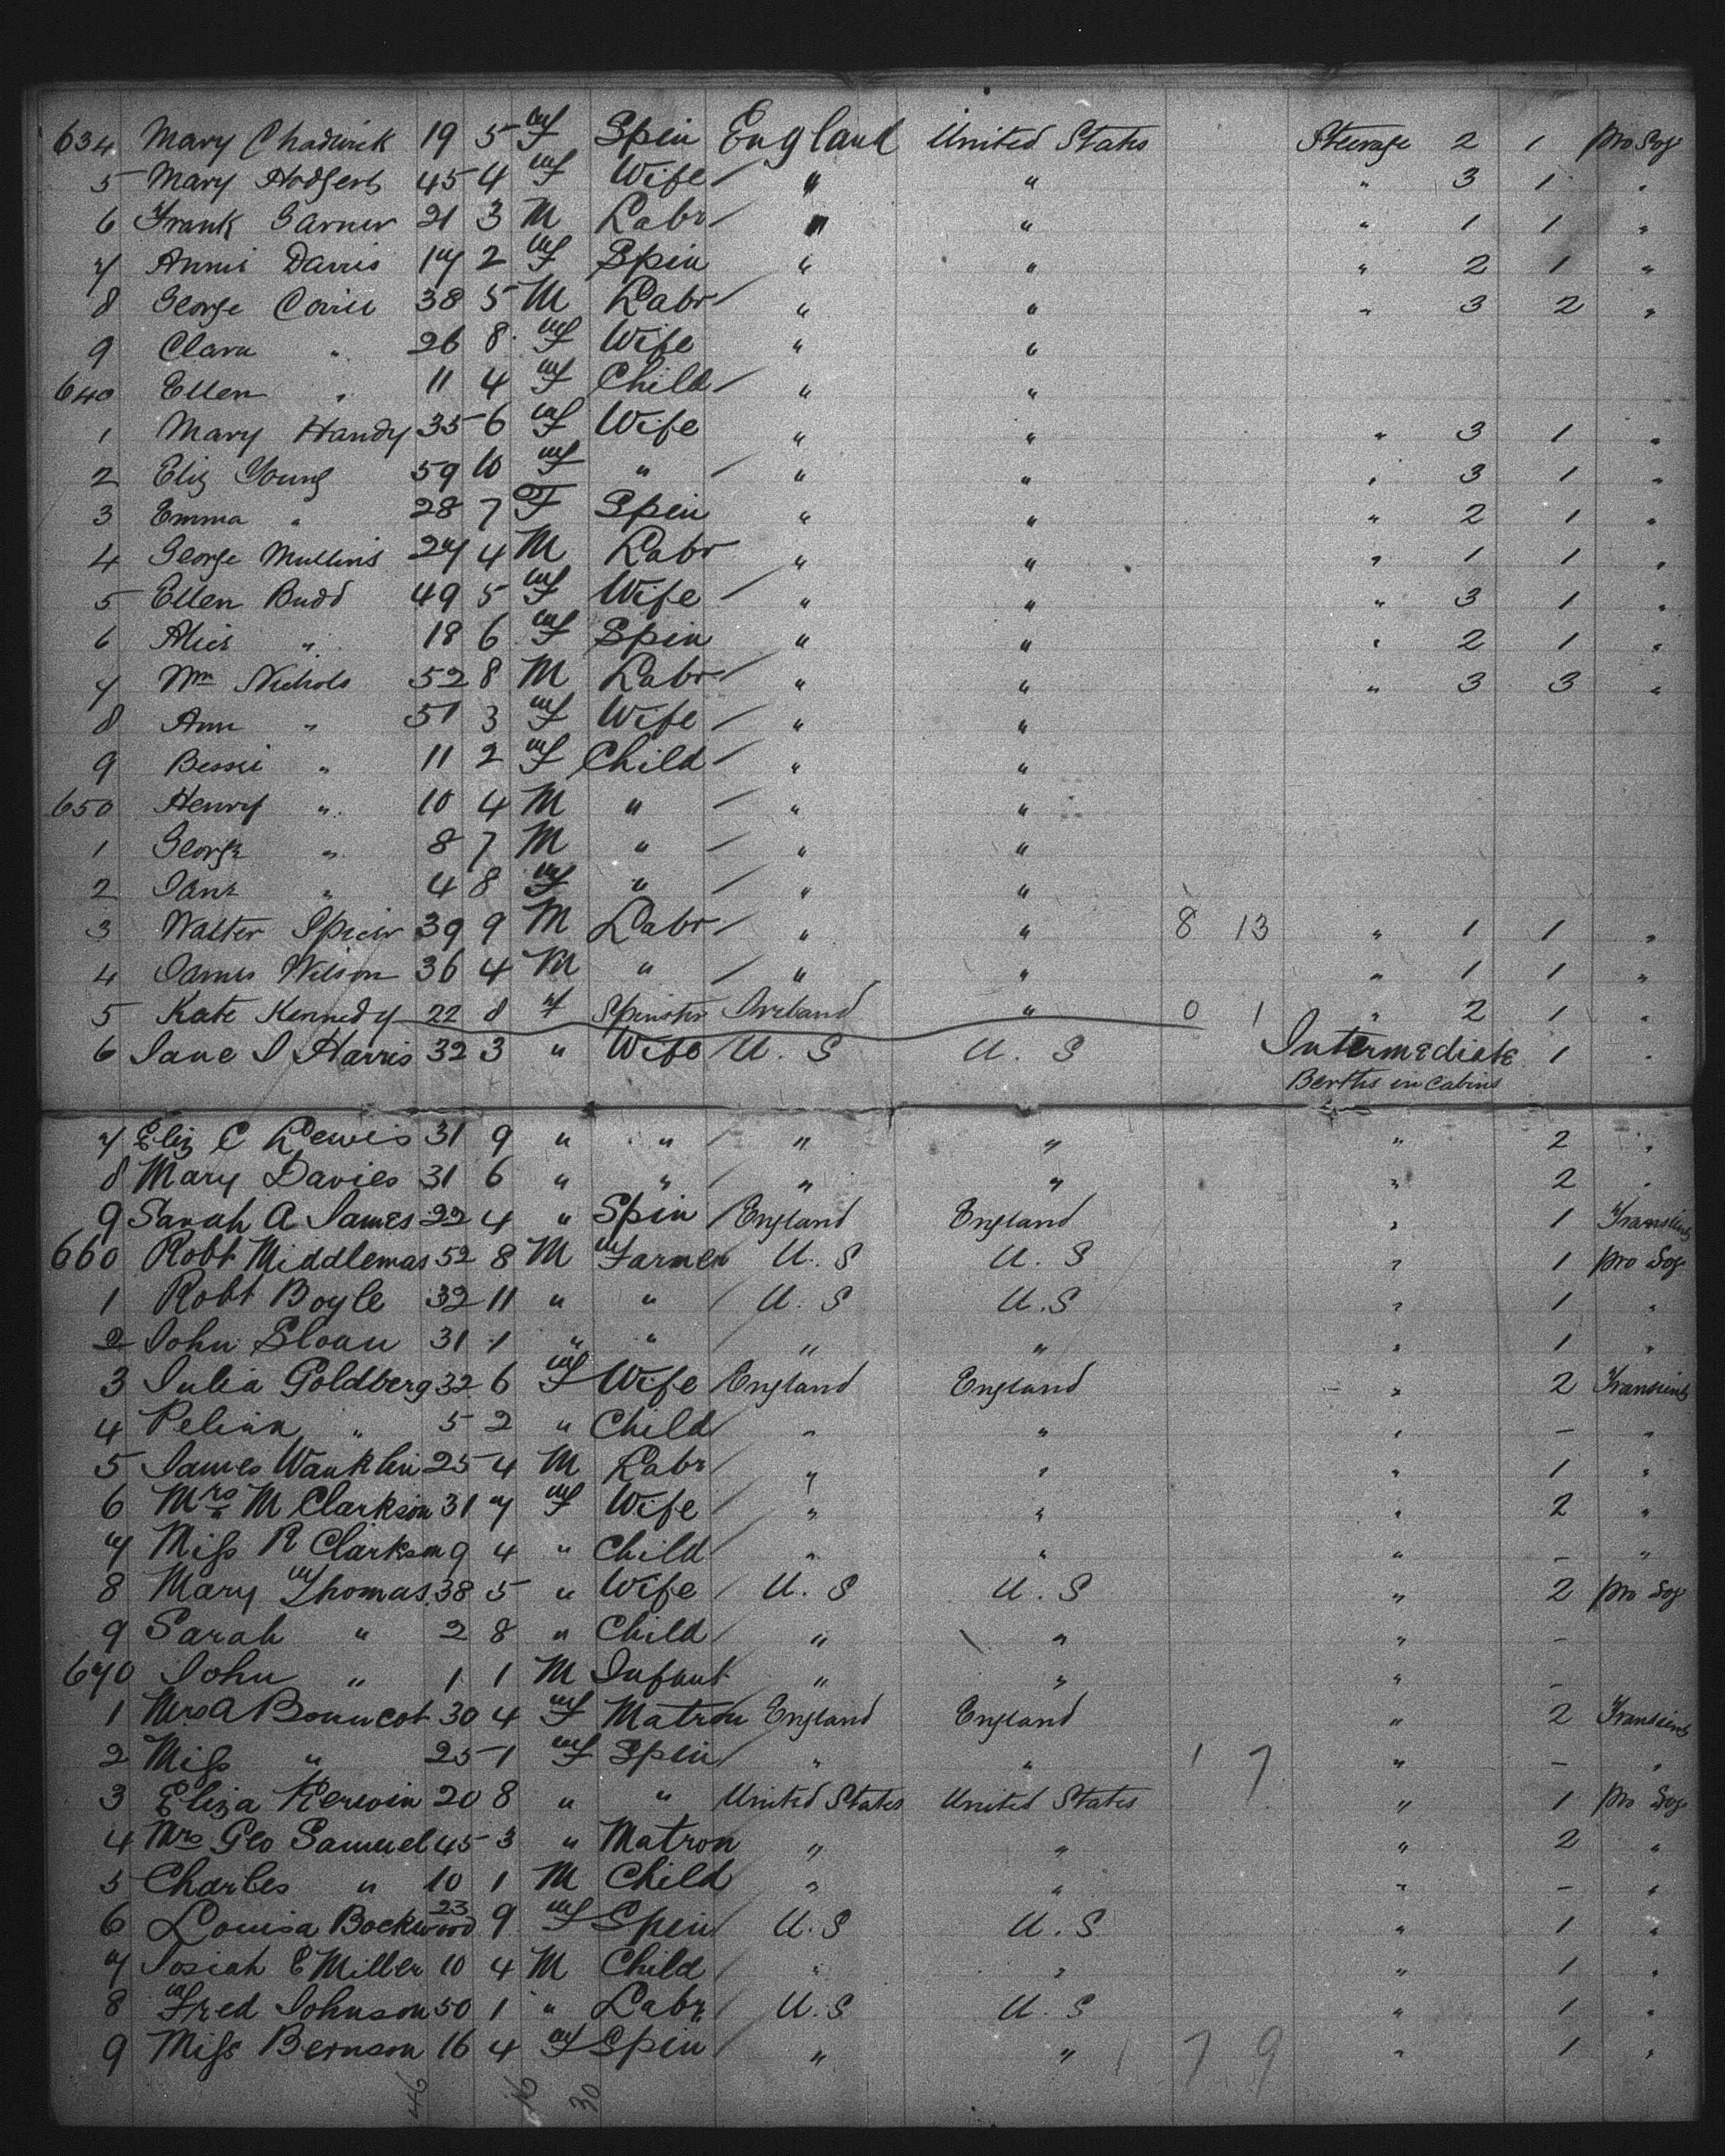 634 Mary Chadwick 19 5 F Spin England United States Steerage 2 1 Pro Soj
5 Mary Hodgert 45 4 F Wife / " " " 3 1 "
6 Frank Garner 21 3 M Labr / " " " 1 1 "
7 Annie Davis 17 2 F Spin " " " 2 1 "
8 George 38 5 M Labr / " " " 3 2 "
9 Clara " 26 8 F Wife " "
640 Ellen " 11 4 F Child / " "
1 Mary Handy 35 6 F Wife " " " 3 1 "
2 Eliz Young 59 10 F " / " " " 3 1 "
3 Emma " 28 7 F Spin " " " 2 1 "
4 George Mullins 27 4 M Labr " " " 1 1 "
5 Ellen Budd 49 5 F Wife / " " " 3 1 "
6 Alice " 18 6 F Spin " " " 2 1 "
7 Wm Nichols 52 8 M Labr / " " " 3 3 "
8 Ann " 51 3 F Wife / " "
9 Bessie " 11 2 F Child / " "
650 Henry " 10 4 M " / " "
1 George " 8 7 M " / " "
2 Jane " 4 8 F " / " "
3 Walter Spicer 39 9 M Labr / " " 8 13 " 1 1 "
4 James Wilson 36 4 M " / " " " 1 1 "
5 Kate Kennedy 22 8 F Spinster Ireland " 0 1 " 2 1 "
6 Jane J Harris 32 3 " Wife / U.S U.S Intermediate 1 "
Berths in Cabins
7 Eliz C Lewis 31 9 " " / " " " 2 "
8 Mary Davies 31 6 " " / " " " 2 "
9 Sarah A James 22 4 " Spin / England England " 1 Transient
660 Robt Middlemas 52 8 M Farmer U.S U.S " 1 Pro Soj
1 Robt Boyle 32 11 " " / U.S U.S " 1 "
2 John Sloan 31 1 " " / " " " 1 "
3 Julia Goldberg 32 6 F Wife / England England " 2 Transient
4 " 5 2 " Child / " " " – "
5 James Wanklin 25 4 M Labr / " " " 1 "
6 Mrs M Clarkson 31 7 F Wife / " " " 2 "
7 Miss R Clarkson 9 4 " Child / " " " – "
8 Mary Thomas 38 5 " Wife / U.S U.S " 2 Pro Soj
9 Sarah " 2 8 " Child / " " " –
670 John " 1 1 M Infant " " " –
1 Mrs A 30 4 F Matron England England " 2 Transient
2 Miss " 25 1 F Spin / " " 1 7 " – "
3 Eliza Kerwin 20 8 " " United States United States " 1 Pro Soj
4 Mrs Geo Samuel 45 3 " Matron " " " 2 "
5 Charles " 10 1 M Child " " " – "
6 Louisa Bockwood 23 9 F Spin / U.S U.S " 1 "
7 Josiah E Miller 10 4 M Child / " " " 1 "
8 Fred Johnson 50 1 " Labr / U.S U.S " 1 "
9 Miss Bernson 16 4 F Spin / " " 7 9 " 1 "
46 16 30